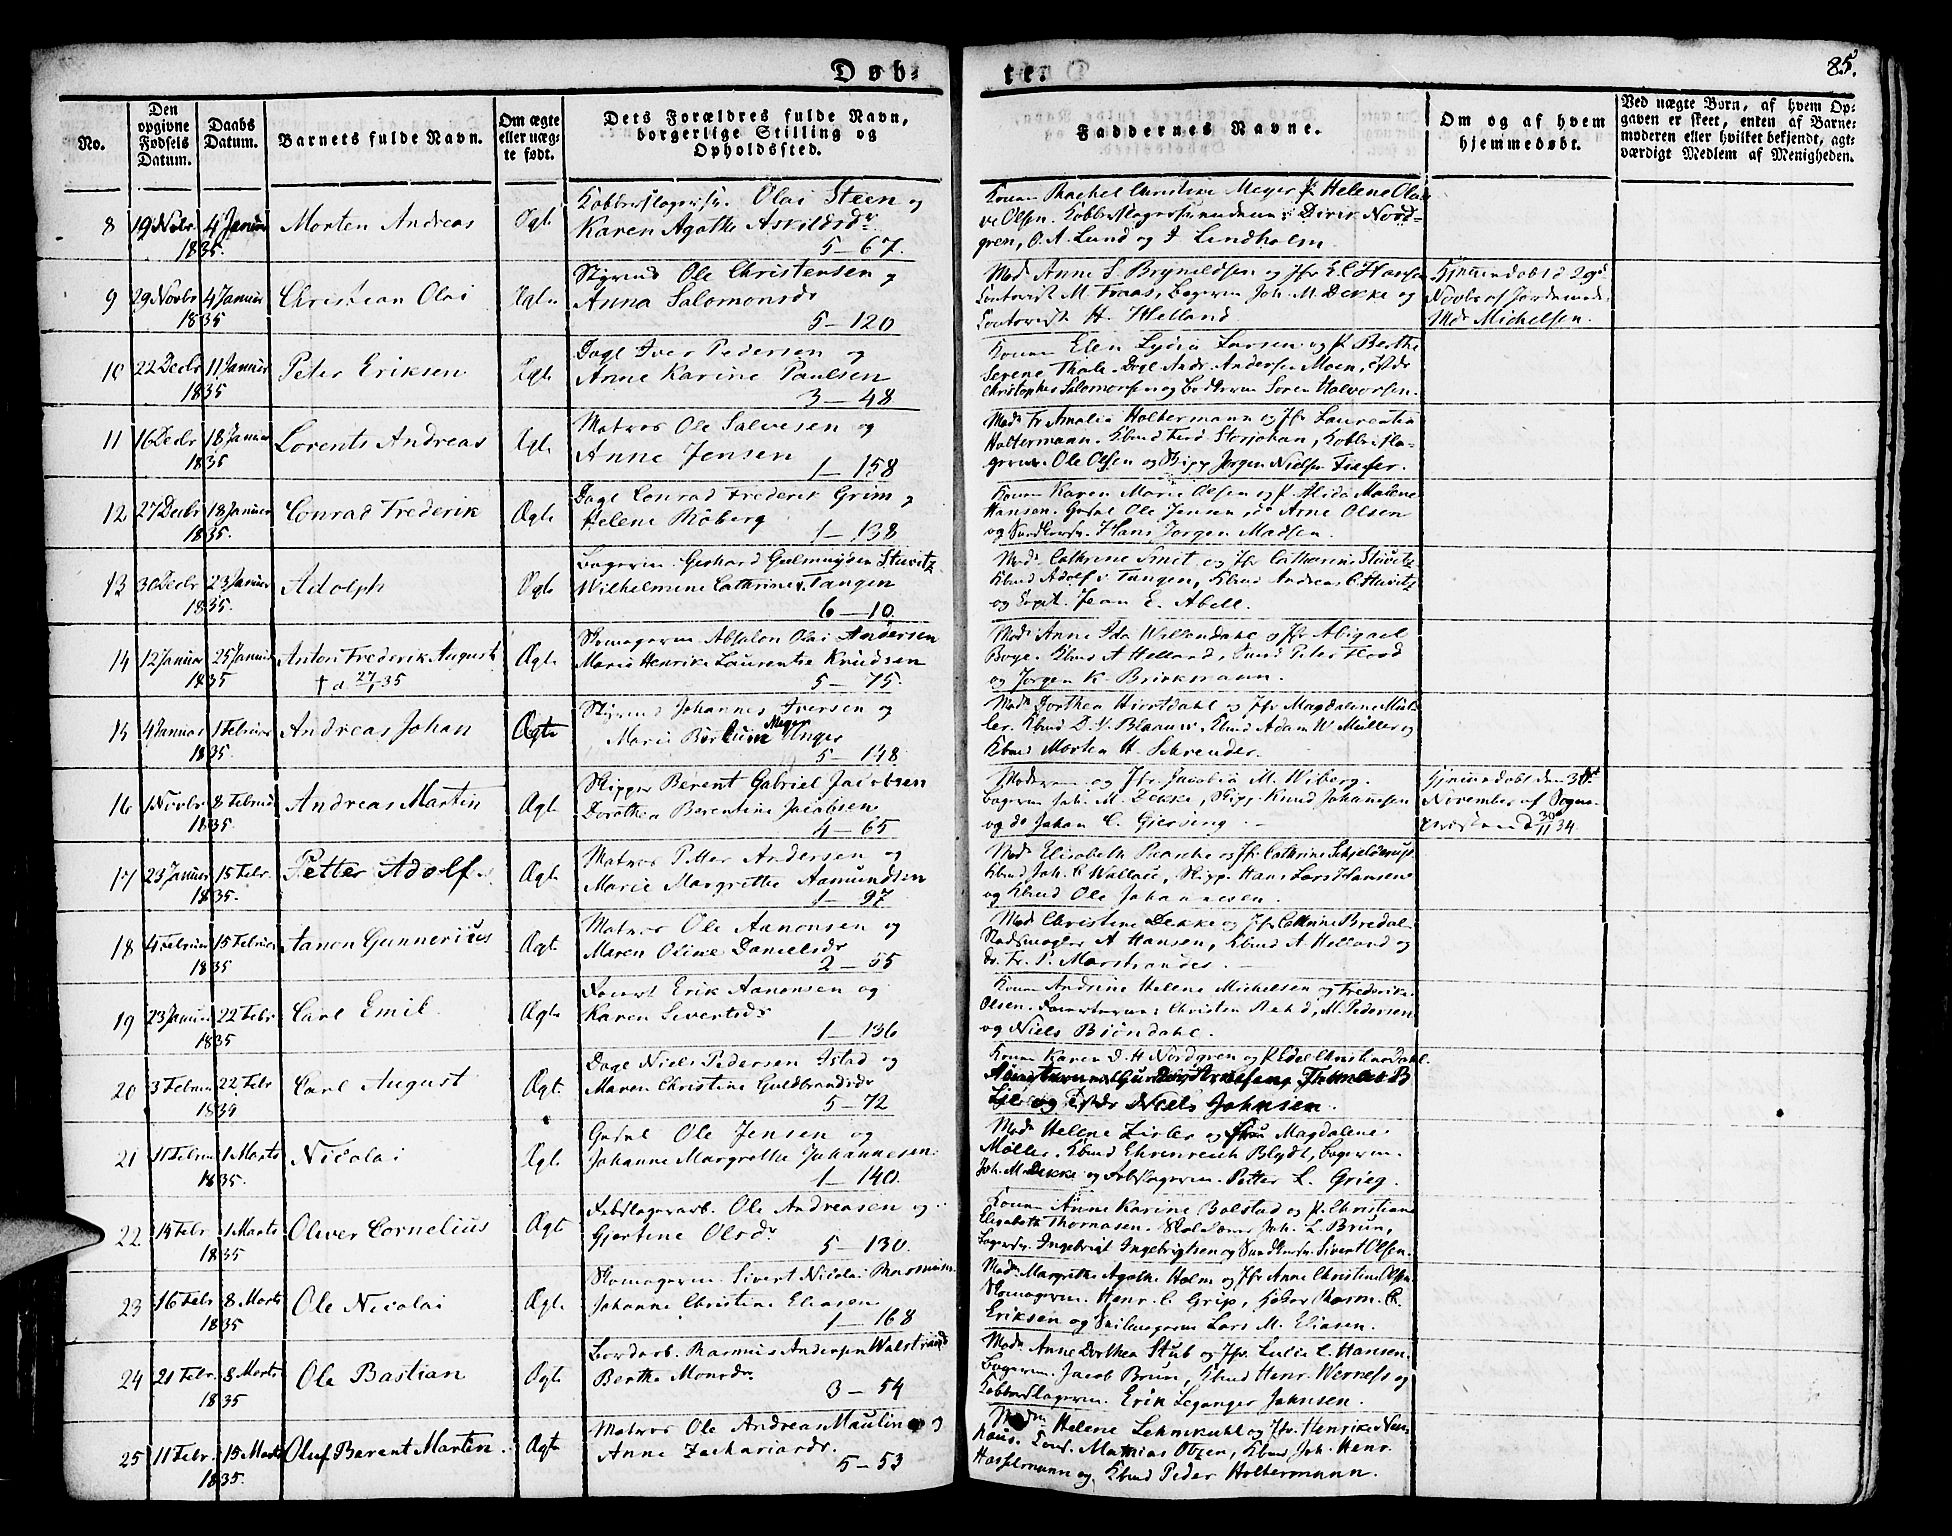 Døb-
te.
85.
No.
Den opgivne Fødsels Datum.
Daabs Datum.
Barnets fulde Navn.
Om ægte eller uægte født.
Dets Forældres fulde Navn, borgerlige Stilling og Opholdssted.
Faddernes Navne.
Om og af hvem hjemmedøbt.
Ved uægte Børn, af hvem Opgaven er skeet, enten af Barnemoderen eller hvilket bekjendt, agtværdigt Medlem af Menigheden.
8 19 Nvbr 4 Januar Morten Andreas Ægte
1835.
Olai Steen og
Karen Agathe Askildsdr
5 – 67.
Konen Rachel Christine Meyer P. Helene Olavi-
ve Olsen. Kobberslager Nord-
gren, O. A. Lund og J Lindholm
9 29 Novbr 4 Januar Christian Olai Ægte
1835
Styrmd Ole Christensen og
Anna Salomonsdr
5 – 120
Mad. Anne S. Brynildsen og Jfr E. C. Hansen
Contorist M. Fraas, Bagerm Joh. M. Dekke og
Contorist H. Helland.
Hjemmedøbt d 29de
Novbr af Jordemoder
Md. Michelsen.
10 22 Decbr 11 Januar Peter Eriksen Ægte
1835
Dagl Iver Pedersen og
Anne Karine Paulsen
3 – 48
Konen Elen Lydia Larsen og P. Berthe
Serene Thale. Dagl Andr. Andersen Moen,
Christopher Salomonsen og Bødkerm Søren Halvorsen.
11 16 Decbr 18 Januar Lorents Andreas Ægte
1835
Matros Ole Salvesen og
Anne Jensen
1 – 158
Mad. Fr Amalia Holtermann og Jfr Laurentia
Holtermann. Kbmd Ferd Storjohan, Kobbersla-
germ. Ole Olsen og Skipp Jørgen Nielsen Fischer.
12 27 Decbr 18 Januar Conrad Frederik Ægte
1835.
Dagl Conrad Frederik Grim og
Helene Röberg
1 – 138
Konen Karen Marie Olsen og P. Alida Malene
Hansen. Ole Jensen, do Arne Olsen
og Hans Jørgen Madsen.
13 30 Decbr 23 Januar Adolph Ægte
1835.
Bagerm. Gerhard Geelmuyden Stuwitz
Wilhelmine Cathrine v. Tangen
6 – 10.
Mad. Cathrine Smit og Jfr Catharine Stuwitz
Kbmd Adolf v. Tangen, Kbmd Andreas C. Stuwitz
og Jean E. Abell.
14 12 Januar 25 Januar Anton Frederik August Ægte
1835 † d 27/1 35
Skomagerm Absalon Olai Andersen
Marie Henrike Laurentse Knudsen
5 – 75.
Mad. Anne Ida Willendahl og Jfr Abigael
Boye. Kbmd A Helland, Peter Flood
og Jørgen K. Brinkmann.
15 4 Januar 1 Februar Andreas Johan Ægte
1835
Styrmd Johannes Iversen og
Meyer
Marie Unger
5 – 148
Mad. Dorthea Hiortdahl og Jfr Magdalene Mül-
ler. Kbmd D. V. Blaauw, Kbmd Adam W Müller og
Kbmd Morten H. Schreuder.
16 Novbr 8 Februar Andreas Martin Ægte
1835.
Skipper Berent Gabriel Jacobsen
Dorothea Berentine Jacobsen
4 – 65
Moderen og Jfr Jacobia M. Wiberg.
Bagerm Joh. M. Dekke, Skipp. Knud Johannesen
og do Johan C. Giersing.
Hjemmedøbt den 30te
November af Sogne-
præsten d 30/11 34
17 23 Januar 15 Febr. Petter Adolf Ægte
1835.
Matros Petter Andersen og
Marie Margrethe Aamundsen
1 – 97
Mad. Elisabeth Paasche og Jfr Cathrine Schjelderup.
Kbmd Joh. C Wallace, Skipp. Hans Lars Hansen
og Kbmd Ole Johannesen.
18 4 Februar 15 Februar Aanon Gunnerius Ægte
1835
Matros Ole Aanonsen og
Maren Oline Danielsdr
2 – 55
Mad Christine Dekke og Jfr Cathrine Bredal.
Stadsmægler A Hansen, Kbmd A. Helland og
do. Fr. P. Marstrander.
19 23 Januar 22 Febr Carl Emil Ægte
1835
Erik Aanonsen og
Karen Sivertsdr
1 – 136
Konen Andrine Helene Michelsen og Frederike
Olsen. Christen, M. Pedersen
og Niels Biöndahl.
20 3 Februar 22 Febr Carl August Ægte
1835
Dagl Niels Pedersen Istad og
Maren Christine Guldbrandsdr
5 – 72
Konen Karen D. H. Nordgren og P. Edel Christine Dahl.
og Niels Johnsen.
21 Februar 1 Marts Nicolai Ægte
1835.
Ole Jensen og
Johanne Margrethe Johannesen
1 – 140.
Mad. Helene Zirler og Magdalene
Møller. Kbmd Ehrenreich Blydt, Bagerm.
Joh. M. Dekke og Petter L. Grieg.
22 14 Febr. 1 Marts Oliver Cornelius Ægte
1835
Rebslagerarb. Ole Andreasen og
Gjertine Olsdr
5 – 130.
Konen Anne Karine Bolstad og P. Christiane
Elisabeth Thomasen. Joh. L. Brun,
Ingebrigt Ingebrigtsen og Sivert Olsen.
23 16 Febr 8 Marts Ole Nicolai Ægte
1835
Skomagerm. Sivert Nicolai Rasmusen
Johanne Christine Eliasen
1 – 168
Mad. Margrethe Agathe Holm og Jfr Anne Christine Olsen.
Skomagerm. Henr. C. Grip,
Eriksen og Lars M. Eliasen.
24 21 Febr. 8 Marts Ole Bastian Ægte
1835
Rasmus Andersen Walstrand
Berthe Monsdr.
3 – 54
Mad. Anne Dorthea Stub og Jfr Lucie C. Hansen.
Bagerm. Jacob Brun, Kbmd Henr. Wernerss og
Kobberslagerm. Erik Leganger Johnsen.
25 11 Febr. 15 Marts Oluf Berent Martin Ægte
1835.
Matros Ole Andreas Mauling og
Anne Zachariasdr.
5 – 53
Mad Helene Lehmkuhl og Jfr Henrike Neu-
haus. Mathias Otzen, Kbmd Joh. Henr.
Hasselmann og Kbmd Peder Holtermann.